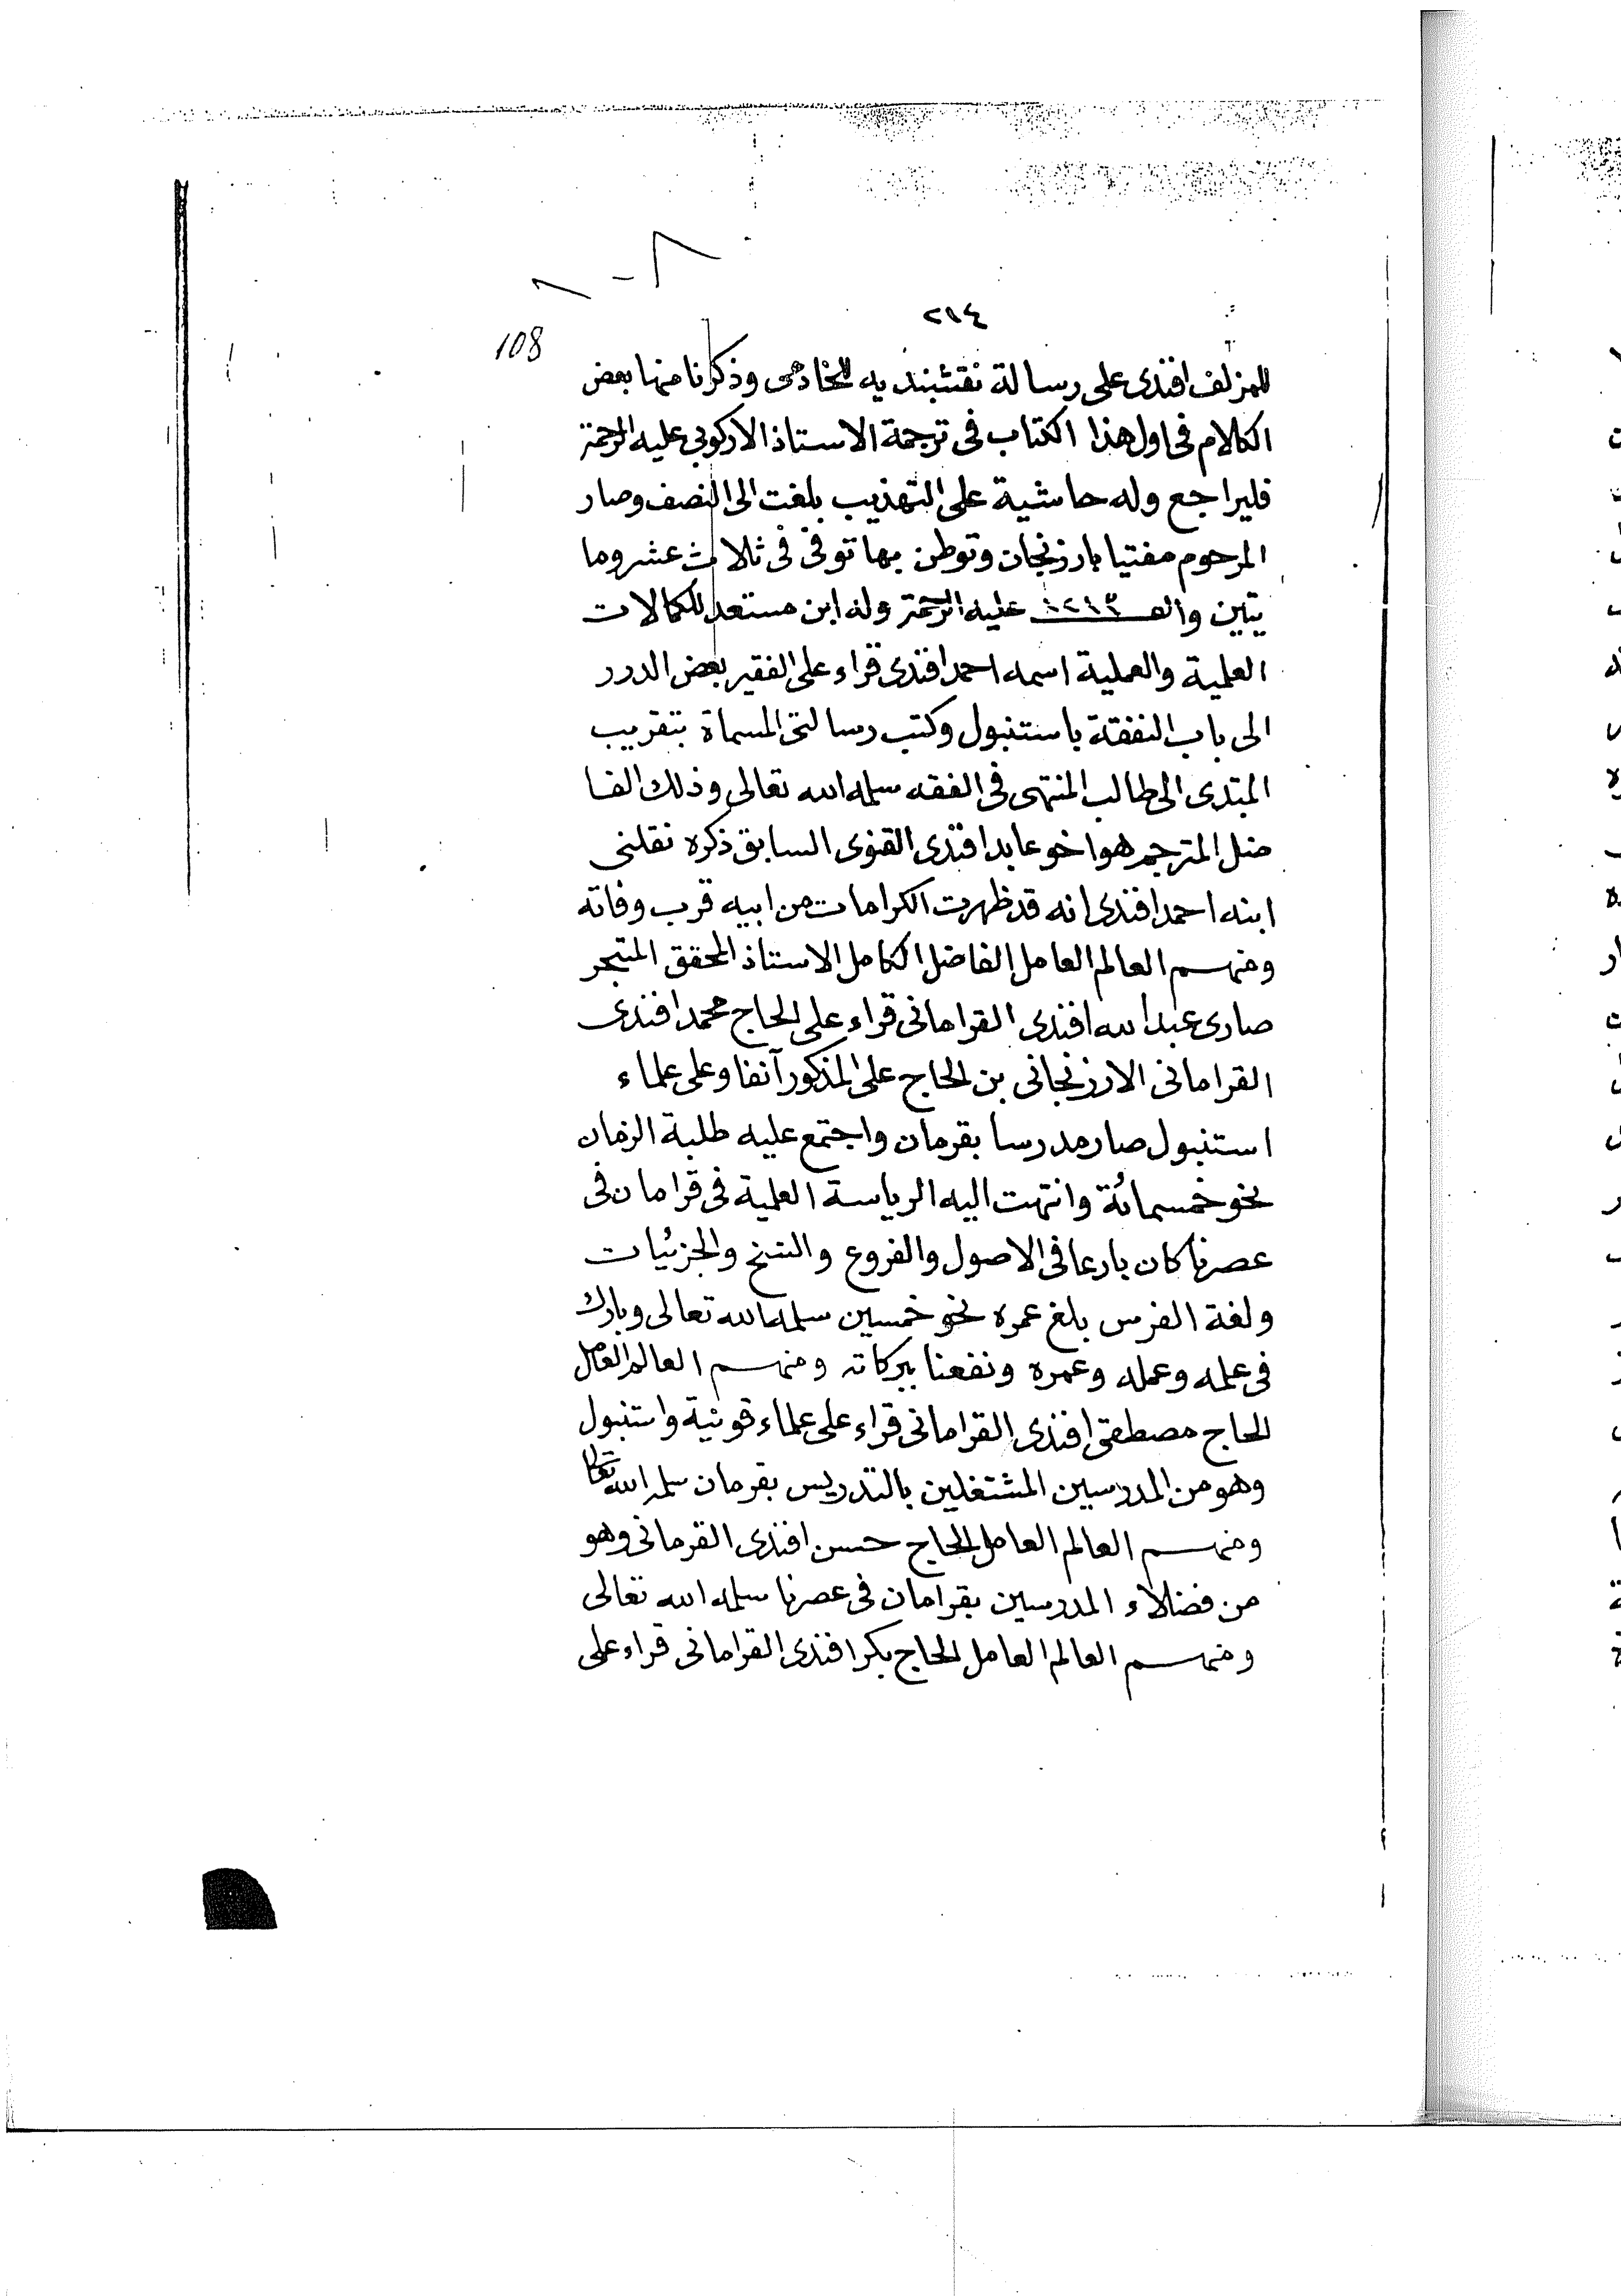 ٢١٤
108
للمزلف افندى على رسالة نقشبنديه للخادمى وذكرنا منها بعض
الكلام فى اول هذا الكتاب فى ترجمة الاستاذ الاركوبى عليه الرحمة
فليراجع وله حاشية على التهذيب بلغت الى النصف وصار
المرحوم مفتيا بارزنجان وتوطن بها توفى فى ثلاث عشر وما
يتين والف ١٢١٣ عليه الرحمة وله ابن مستعد للكمالات
العلمية والعملية اسمه احمد افندى قراء على الفقير بعض الدرر
الى باب النفقة باستنبول وكتب رسالتى المسماة بتقريب
المبتدى الى طالب المنتهى فى الفقه سلمه الله تعالى وذلك الفا
ضل المترجم هو اخو عابد افندى القنوى السابق ذكره نقلنى
ابنه احمد افندى انه قد ظهرت الكرامات من ابيه قرب وفاته
ومنهم العالم العامل الفاضل الكامل الاستاذ المحقق المتبحر
صارى عبد الله افندى القرامانى قراء على الحاج محمد افندى
القرامانى الارزنجانى بن الحاج على المذكور آنفا وعلى علماء
استنبول صار مدرسا بقرمان واجتمع عليه طلبة الزمان
نحو خمسمائة وانتهت اليه الرياسة العلمية فى قرامان فى
عصرنا كان بارعا فى الاصول والفروع والنسخ والجزئيات
ولغة الفرس بلغ عمره نحو خمسين سلمه الله تعالى وبارك
فى علمه وعمله وعمره ونفعنا ببركاته ومنهم العالم العامل
الحاج مصطفى افندى القرامانى قراء على علماء قونية واستنبول
وهو من المدرسين المشتغلين بالتدريس بقرمان سلمه الله تعالى
ومنهم العالم العامل الحاج حسن افندى القرمانى وهو
من فضلاء المدرسين بقرامان فى عصرنا سلمه الله تعالى
ومنهم العالم العامل الحاج بكر افندى القرامانى قراء على